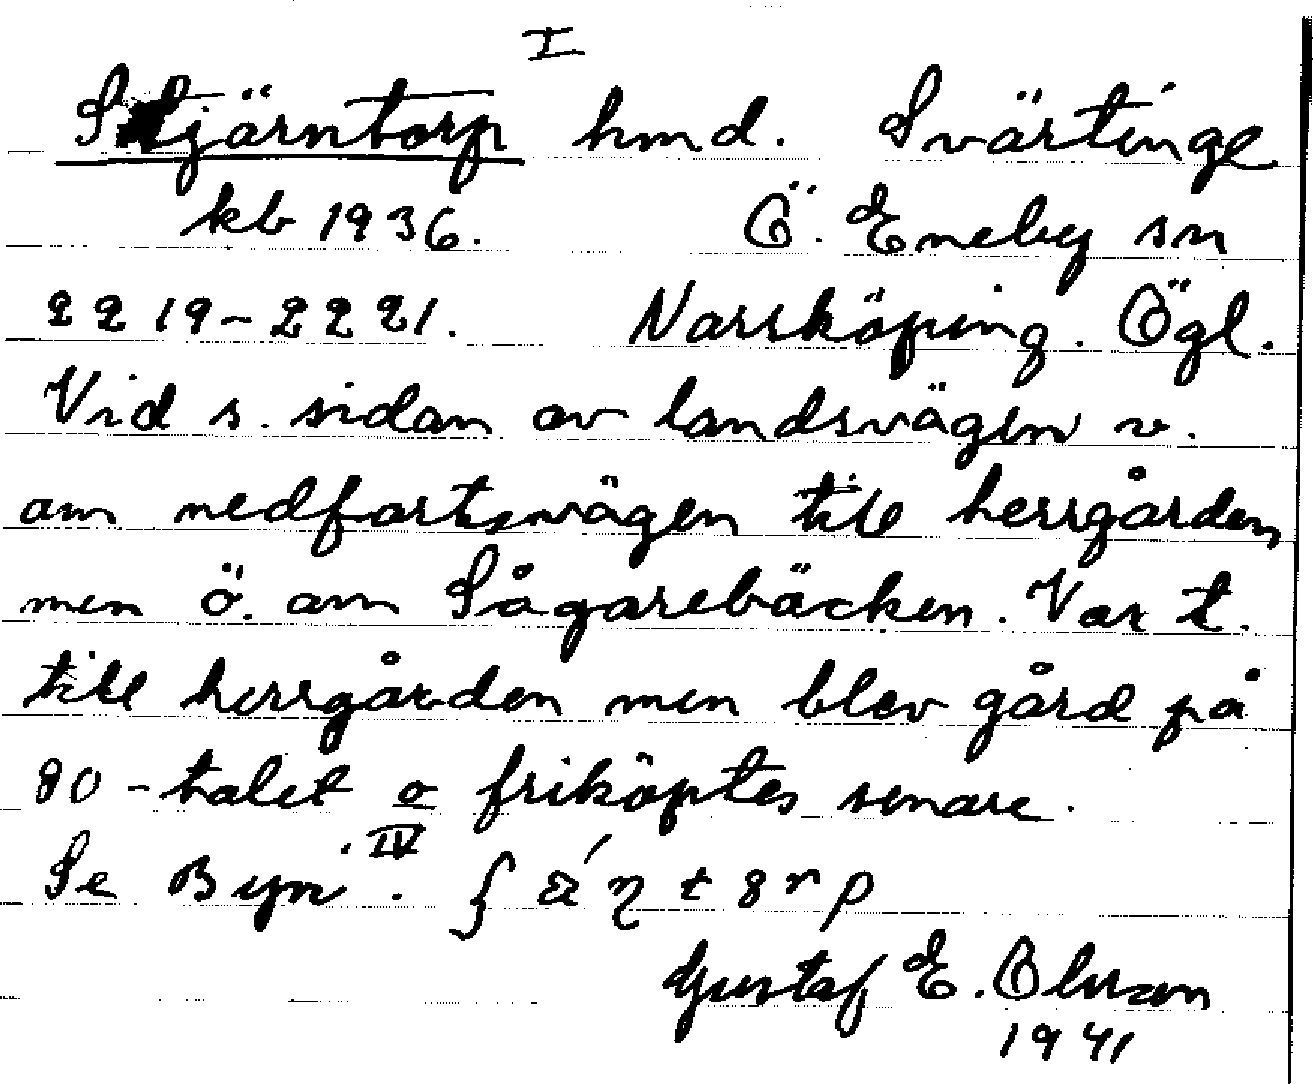 I
Stjärntorp hmd. Svärtinge
kb 1936. Ö. Eneby sn
2219-2221. Norrköping. Ögl.
Vid s. sidan av landsvägen v.
om nedfartsvägen till herrgården
men ö. om Sågarebäcken. Var t.
till herrgården men blev gård på
80-talet o friköptes senare.
Se Byn IV.
Gustaf E. Olsson
1941